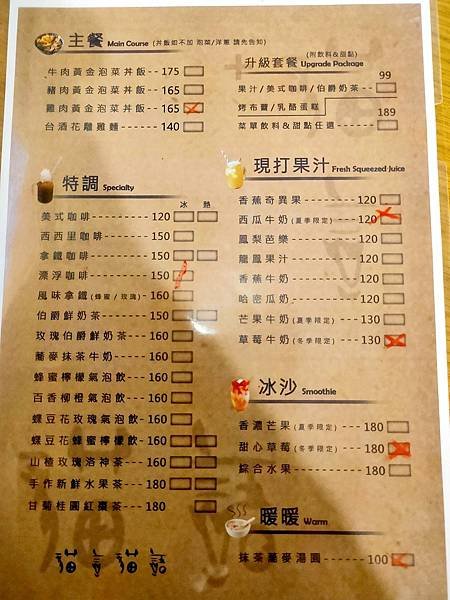 主餐 Main Course (丼飯如不加 泡菜/洋蔥 請先告知)
牛肉黃金泡菜丼飯---175
豬肉黃金泡菜丼飯---165
雞肉黃金泡菜丼飯---165
台酒花雕雞麵------140
(附飲料&甜點)
升級套餐 Upgrade Package
99
果汁/美式咖啡/伯爵奶茶----
烤布蕾/乳酪蛋糕
189
菜單飲料&甜點任選--------
特調 Specialty
冰 熱
美式咖啡--------120
西西里咖啡-------150
拿鐵咖啡--------150
漂浮咖啡--------150
風味拿鐵(蜂蜜/玫瑰)--160
伯爵鮮奶茶-------150
玫瑰伯爵鮮奶茶---160
蕎麥抹茶牛奶-----160
蜂蜜檸檬氣泡飲---160
百香柳橙氣泡飲---160
蝶豆花玫瑰氣泡飲-160
蝶豆花蜂蜜檸檬飲-160
山楂玫瑰洛神茶---160
手作新鮮水果茶---180
甘菊桂圓紅棗茶---180
現打果汁 Fresh Squeezed Juice
香蕉奇異果-------120
西瓜牛奶(夏季限定)---120
鳳梨芭樂---------120
龍鳳果汁---------120
香蕉牛奶---------120
哈密瓜奶---------120
芒果牛奶(夏季限定)---130
草莓牛奶(冬季限定)---130
冰沙 Smoothie
香濃芒果(夏季限定)---180
甜心草莓(冬季限定)---180
綜合水果---------180
暖暖 Warm
抹茶蕎麥湯圓-------100